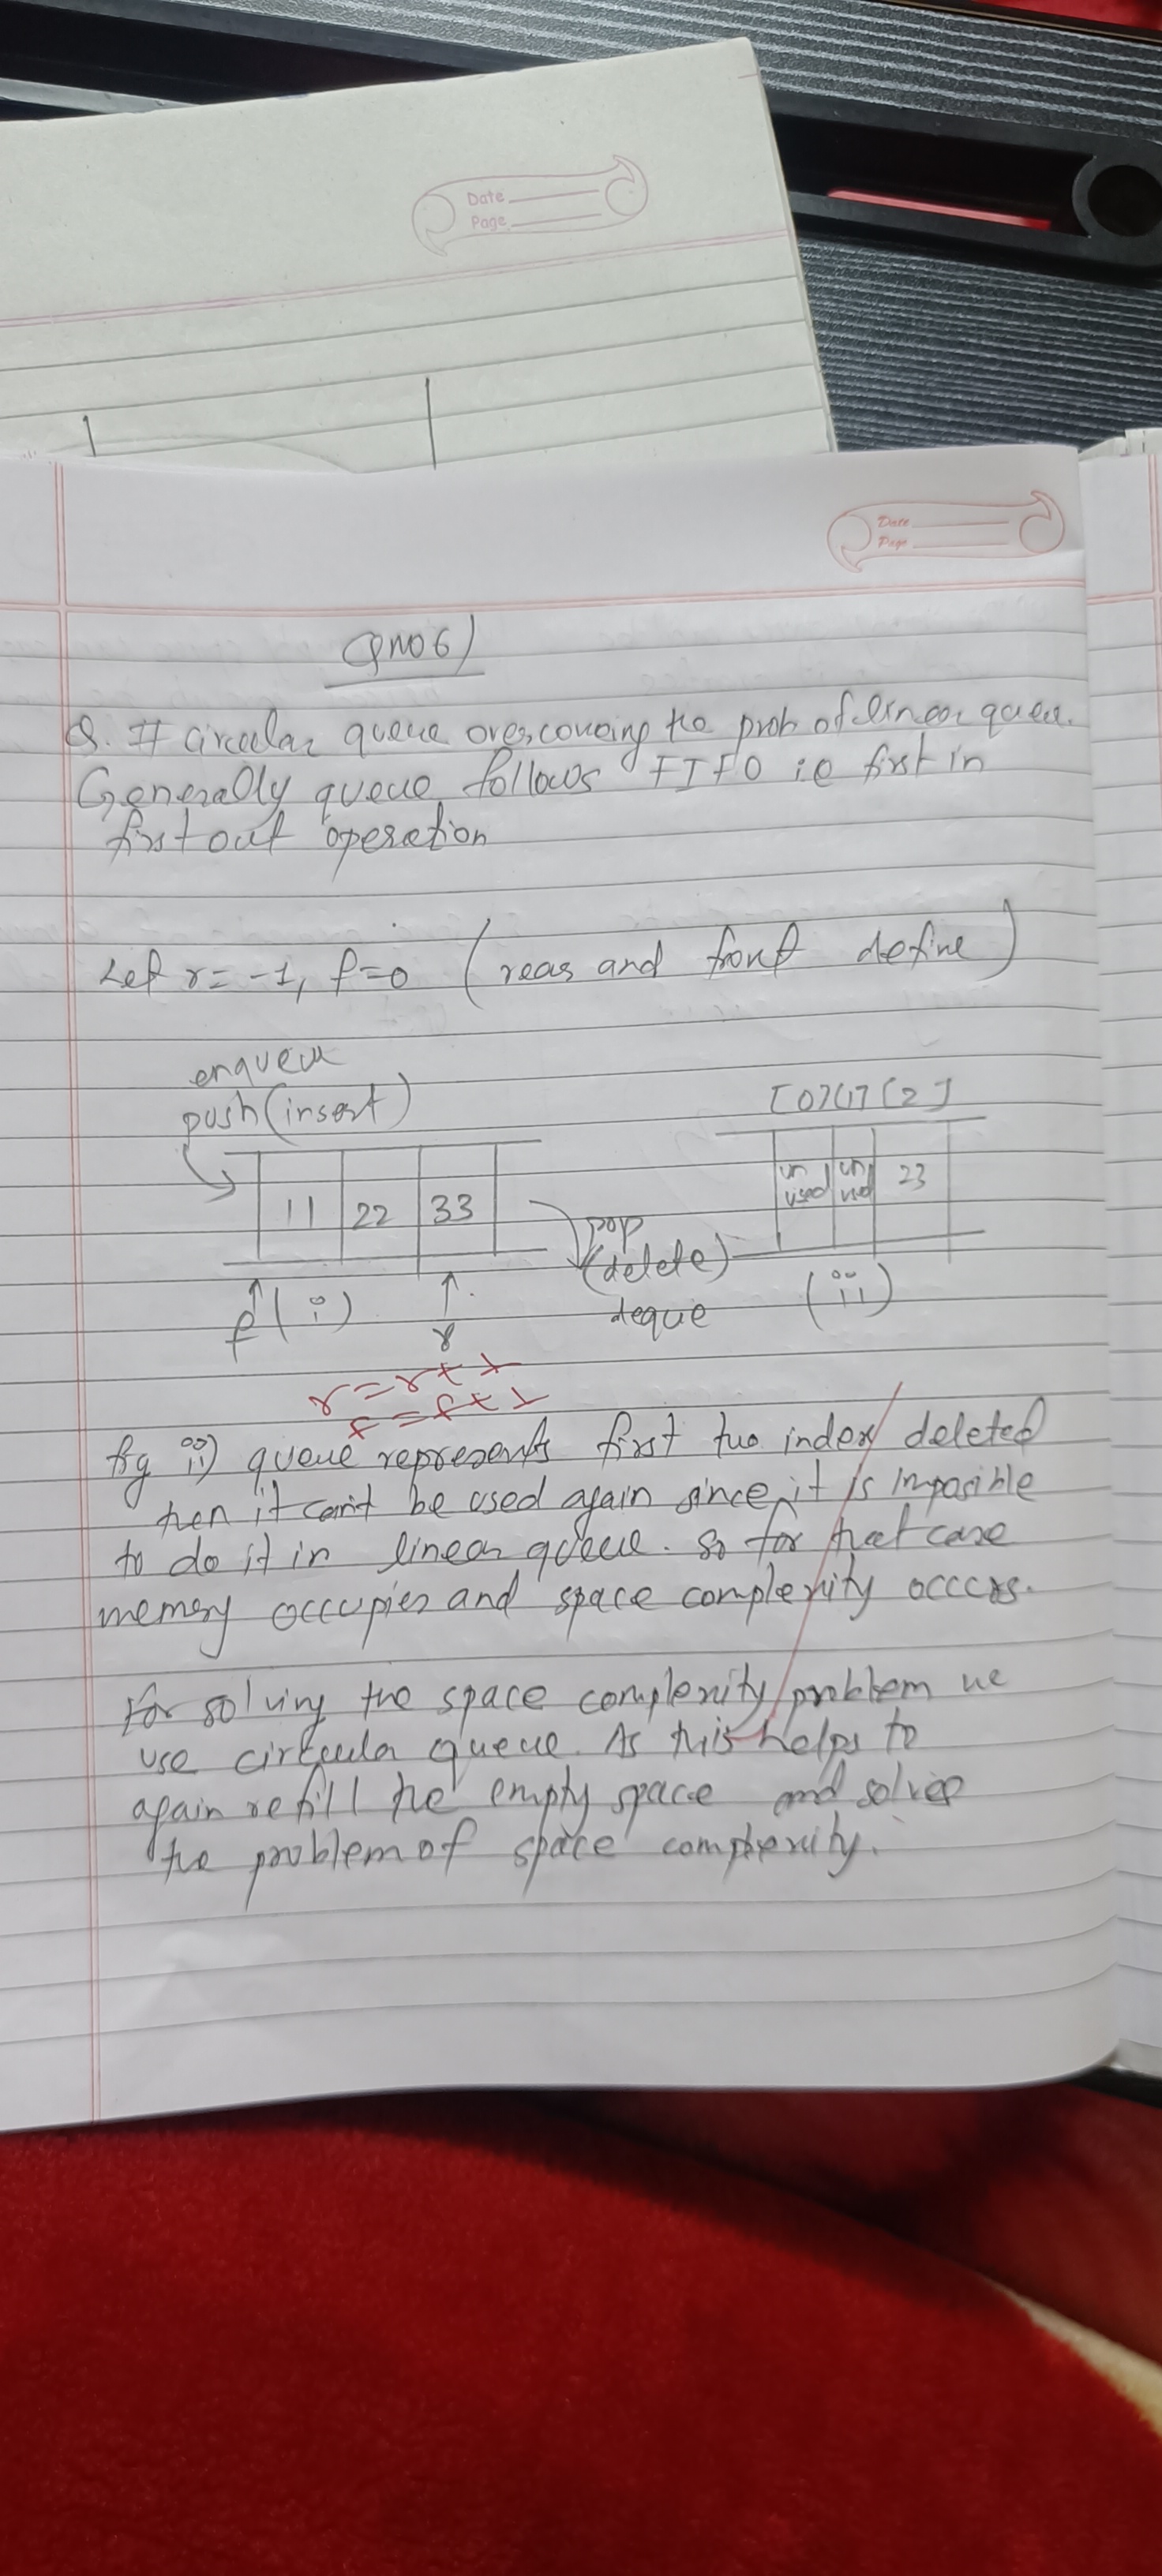 Date
Page
Date
Page
Qno 6)
Q. If circular queue overcoming the prob of linear queu.
Generally queue follows FIFO ie first in
first out operation
Let r = -1, f=0 (rear and front define)
enqueu
push(insert)
[0][1][2]
11 22 33
un used un used 23
pop
(delete)
deque
f (i) r
(ii)
r = r + 1
f = f + 1
fig ii) queue represents first two index deleted
then it can't be used again since it is imposible
to do it in linear queue. So for that case
memory occupies and space complexity occurs.
For solving the space complexity problem we
use circular queue. As this helps to
again refill the empty space and solves
the problem of space complexity.